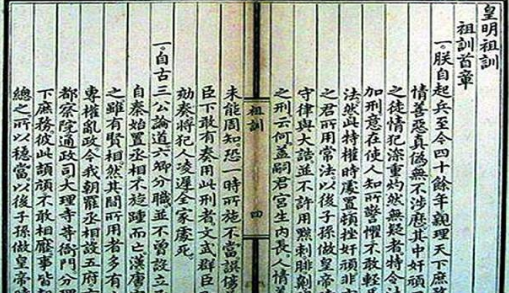 皇明祖訓
祖訓首章
一。朕自起兵至今四十餘年親理天下庶
情善惡真偽無不涉歷其中奸頑
之徒情犯深重灼然無疑者特令
加刑意在使人知所警懼不敢輕
法然此特權時處置頓挫奸頑非
之君所用常法以後子孫做皇帝
守律與大誥並不許用黥刺腓劓
之刑云何蓋嗣君宮生內長人情善
祖訓 四
未能周知恐一時所施不當誤傷
臣下敢有奏用此刑者文武群臣
劾奏將犯人凌遲全家處死
一。自古三公論道六卿分職並不曾設立
自秦始置丞相不旋踵而亡漢唐
之雖有賢相然其間所用者多有
專權亂政今我朝罷丞相設五府
都察院通政司大理寺等衙門分理
下庶務彼此頡頏不敢相壓事皆
總之所以穩當以後子孫做皇帝時